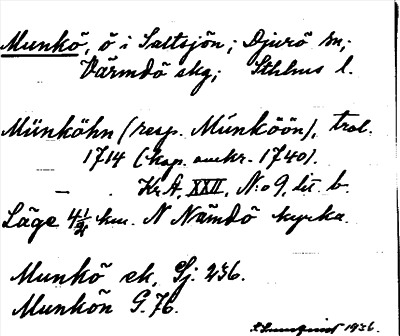 Munkö, ö i Saltsjön; Djurö sn;
Värmdö skg; Sthlms l.
Münköhn (resp. Münköön), trol.
1714 (kop. omkr. 1740).
— Kr. A, XXII, No 9, lit b.
Läge 4½ km. N Nämdö kyrka.
Munkö ek, Sj. 236.
Munkön G. 76.
1936.